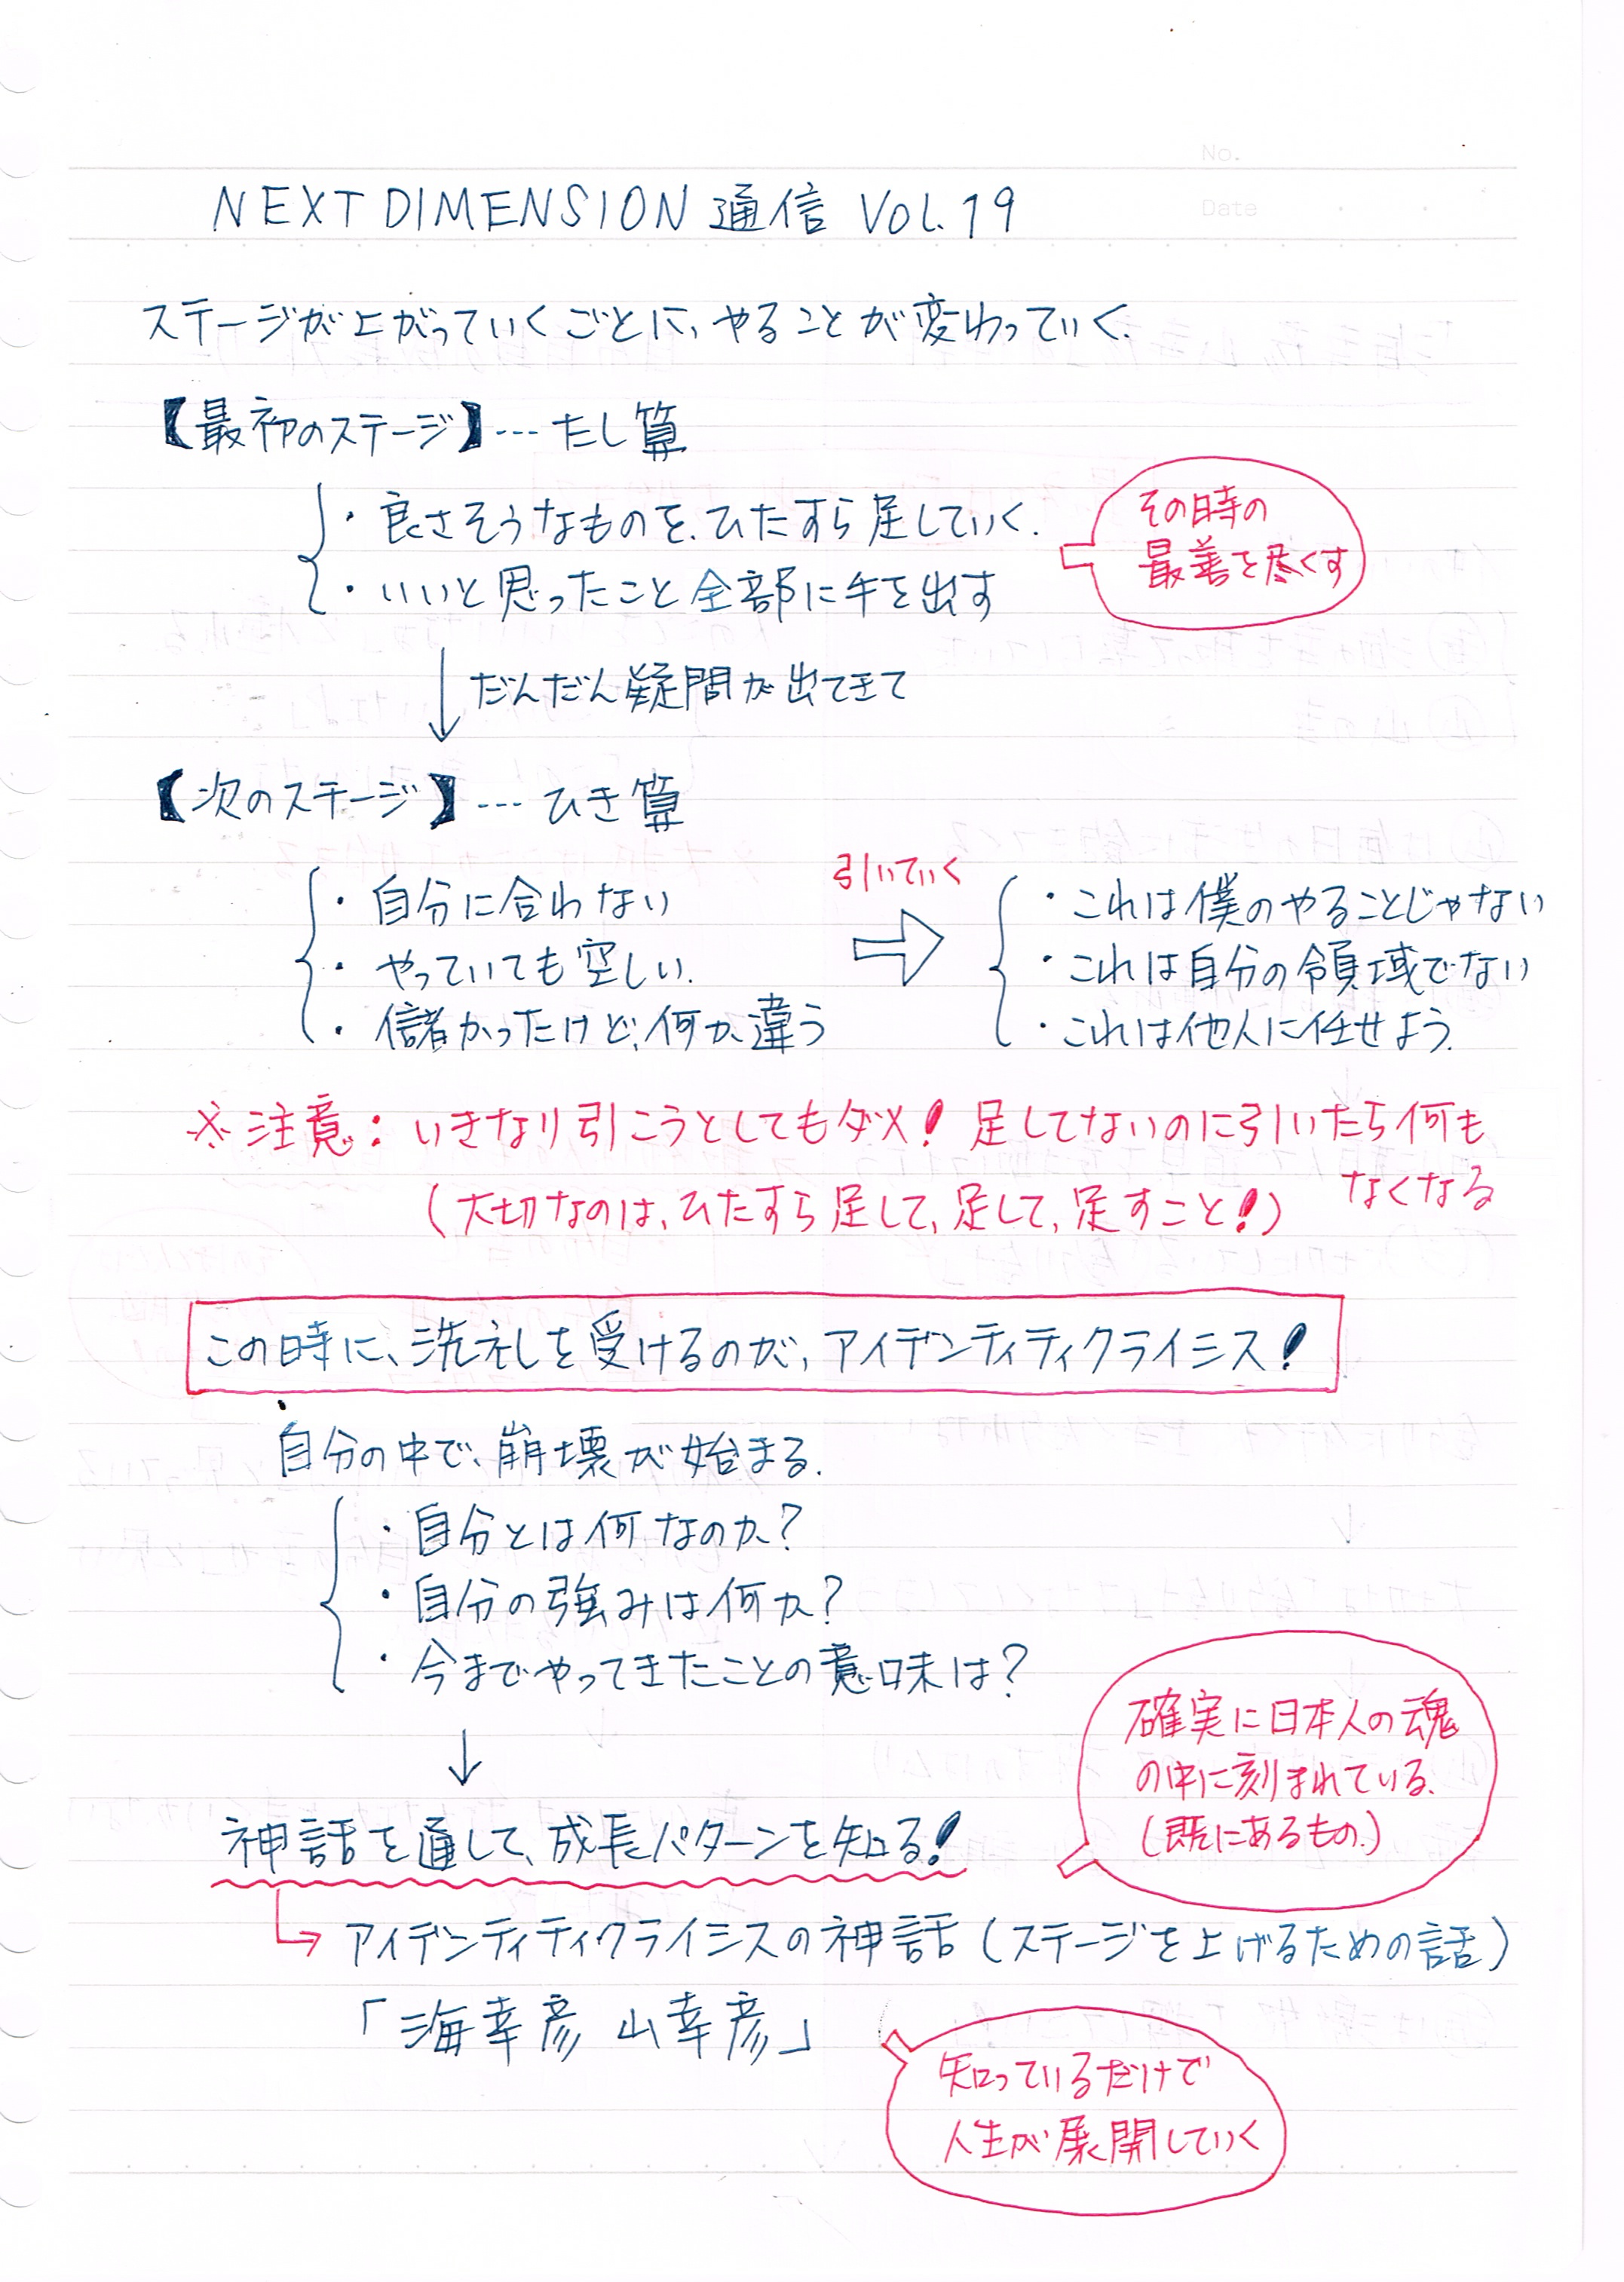 No.
Date
NEXT DIMENSION 通信 Vol.19
ステージが上がっていくごとに、やることが変わっていく.
【最初のステージ】---たし算
・良さそうなものを、ひたすら足していく.
・いいと思ったこと全部に手を出す
その時の
最善を尽くす
だんだん疑問が出てきて
【次のステージ】---ひき算
・自分に合わない
・やっていても空しい.
・儲かったけど、何か違う
引いていく
・これは僕のやることじゃない
・これは自分の領域でない
・これは他人に任せよう.
※注意:いきなり引こうとしてもダメ!足してないのに引いたら何も
なくなる
(大切なのは、ひたすら足して、足して、足すこと!)
この時に、洗礼を受けるのが、アイデンティティクライシス!
自分の中で、崩壊が始まる.
・自分とは何なのか?
・自分の強みは何か?
・今までやってきたことの意味は?
確実に日本人の魂
の中に刻まれている.
(既にあるもの.)
神話を通して、成長パターンを知る!
アイデンティティクライシスの神話(ステージを上げるための話)
「海幸彦 山幸彦」
知っているだけで
人生が展開していく